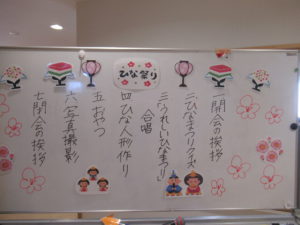 ひな祭り
一開会の挨拶
二ひなまつりクイズ
三「うれしいひなまつり」
合唱
四ひな人形作り
五おやつ
六写真撮影
七閉会の挨拶